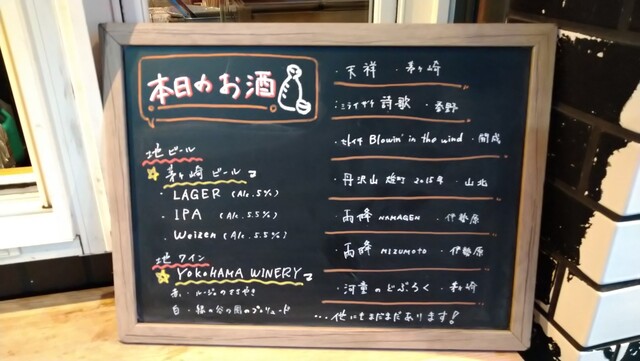 本日のお酒
地ビール
☆茅ヶ崎ビール
・LAGER (Alc.5%)
・IPA (Alc.5.5%)
・Weizen (Alc.5.5%)
地ワイン
☆YOKOHAMA WINERY
赤・ルージュのささやき
白・緑の谷の風のプレリュード
・天祥 ・茅ヶ崎
・ミライザケ 詩歌 ・秦野
・セトイチ Blowin' in the wind ・開成
・丹沢山 雄町 2015年 ・山北
・雨降 NAMAGEN ・伊勢原
・雨降 MIZUMOTO ・伊勢原
・河童のどぶろく ・茅ヶ崎
...他にもまだまだあります!